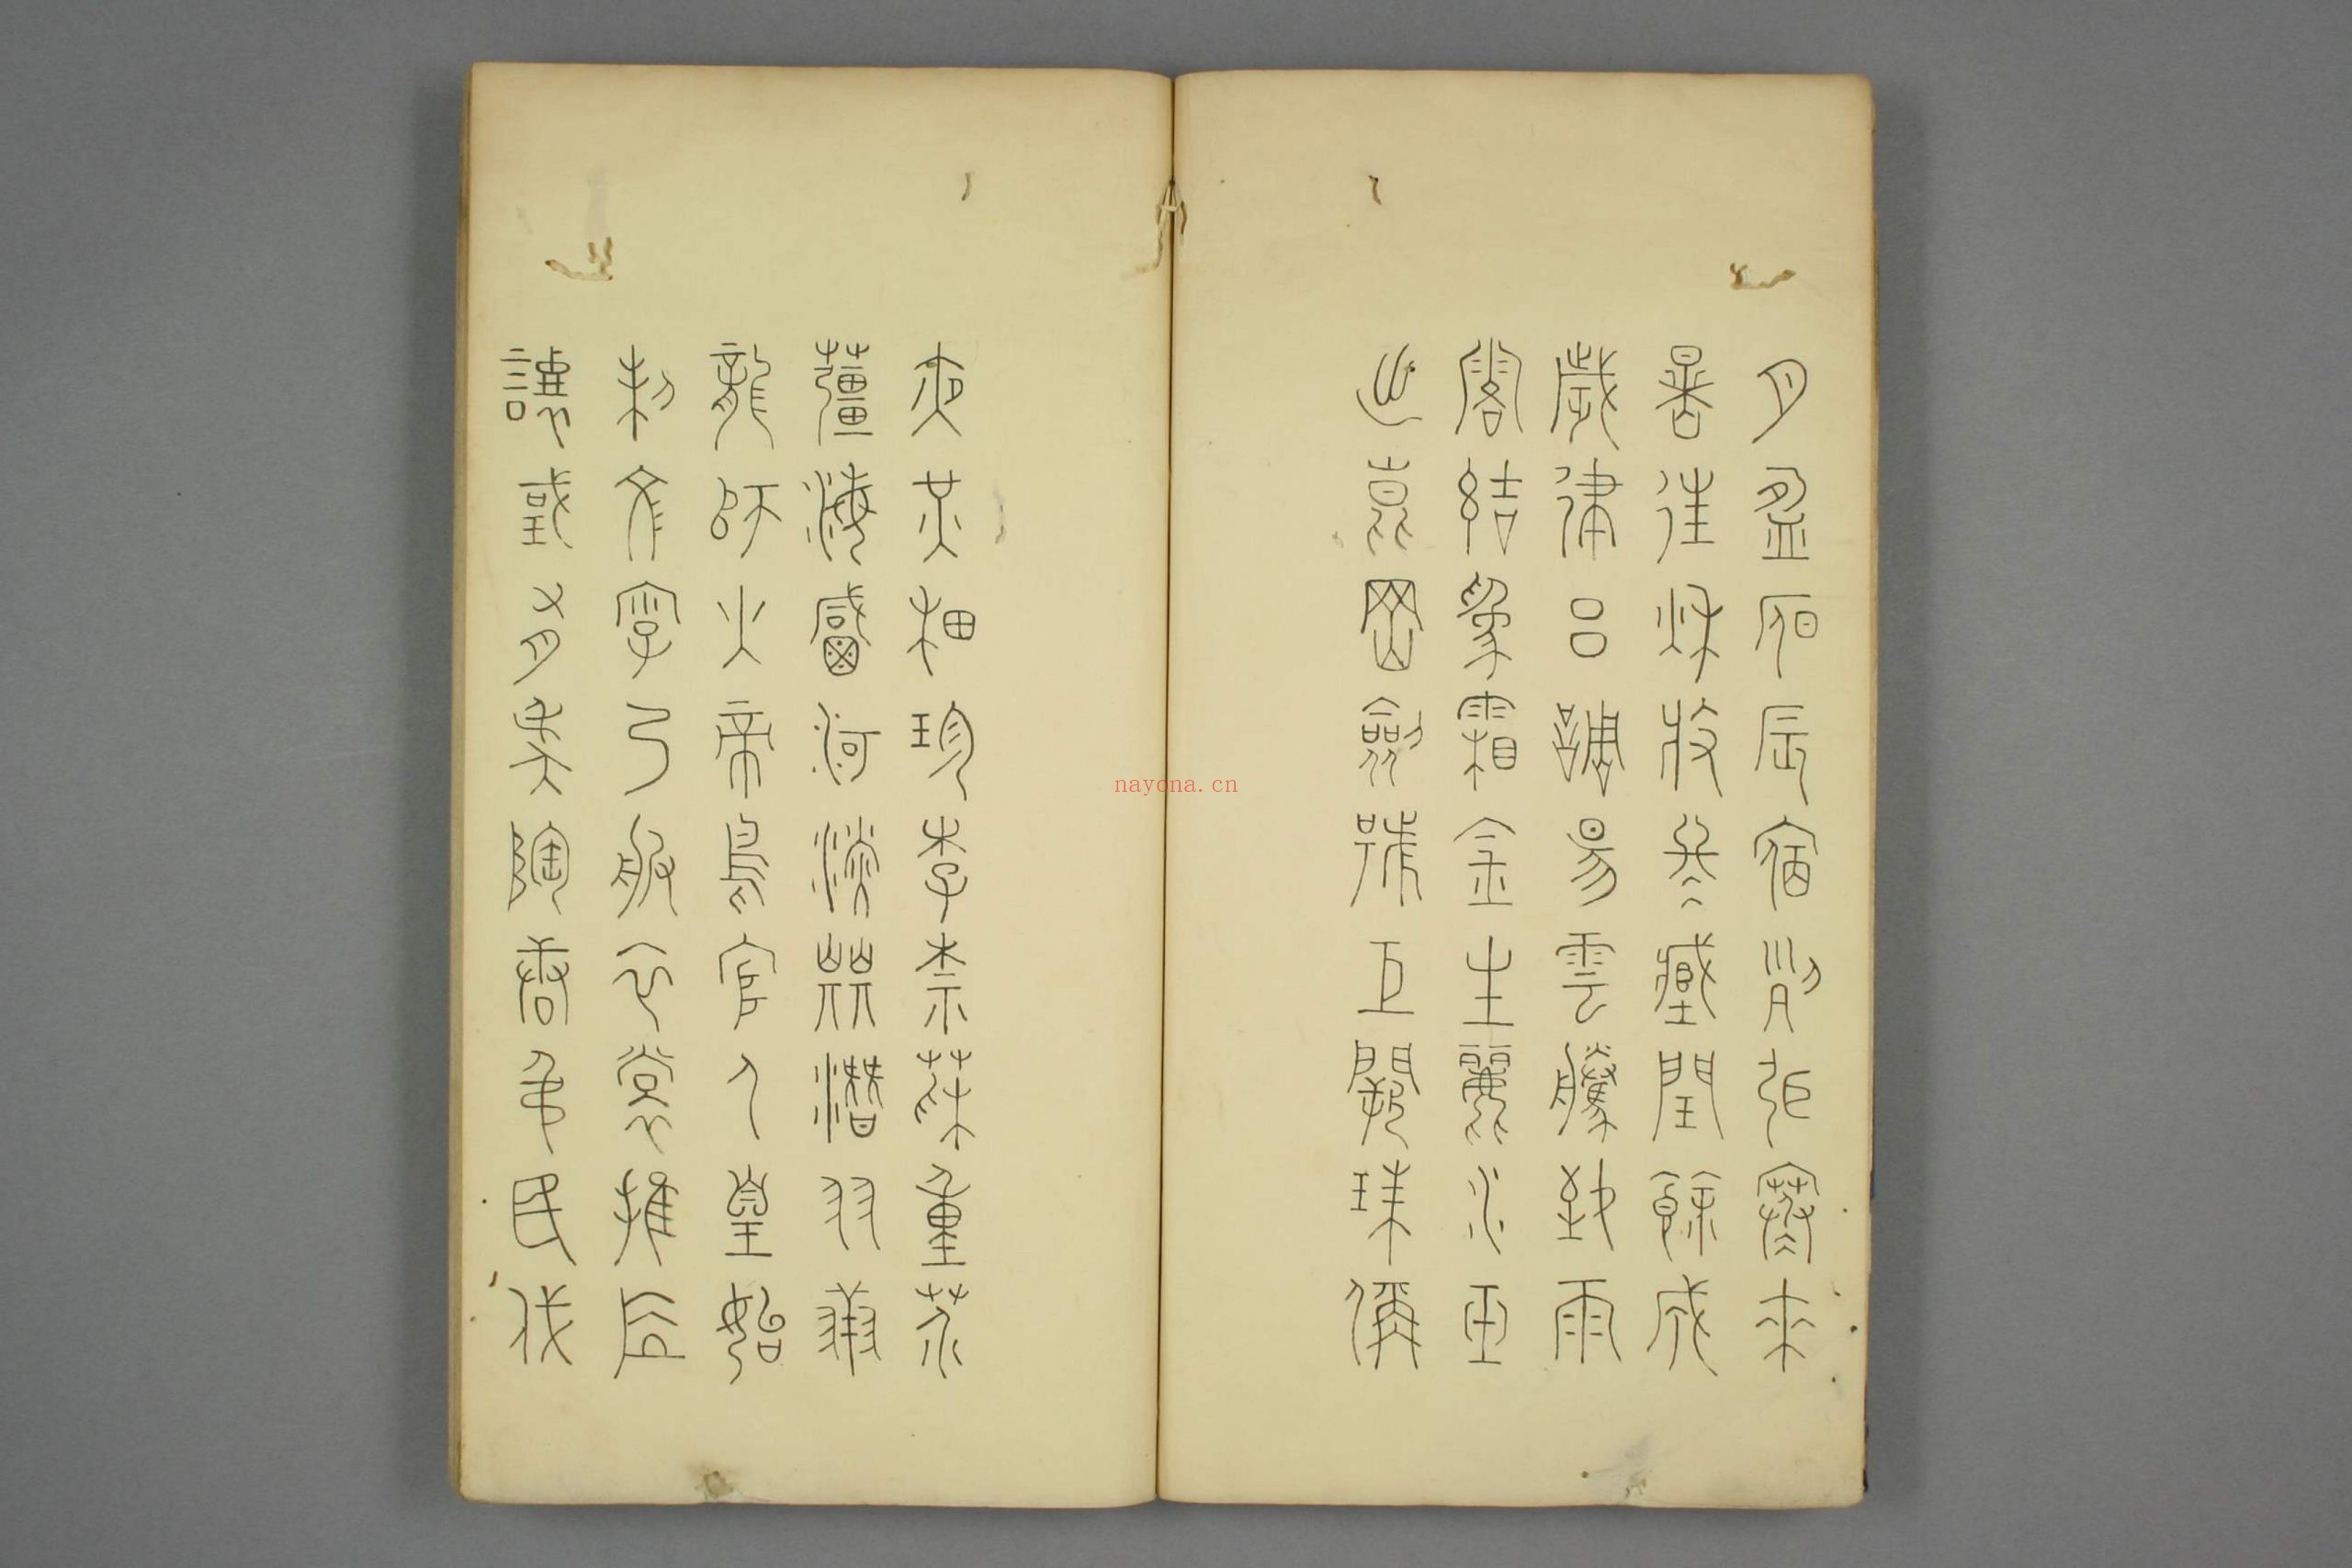 月盈昃辰宿列張寒來
暑往秋收冬藏閏餘成
歲律呂調陽雲騰致雨
露結為霜金生麗水玉
出崑岡劍號巨闕珠稱
夜光果珍李柰菜重芥
薑海鹹河淡鱗潛羽翔
龍師火帝鳥官人皇始
制文字乃服衣裳推位
讓國有虞陶唐弔民伐
nayona.cn